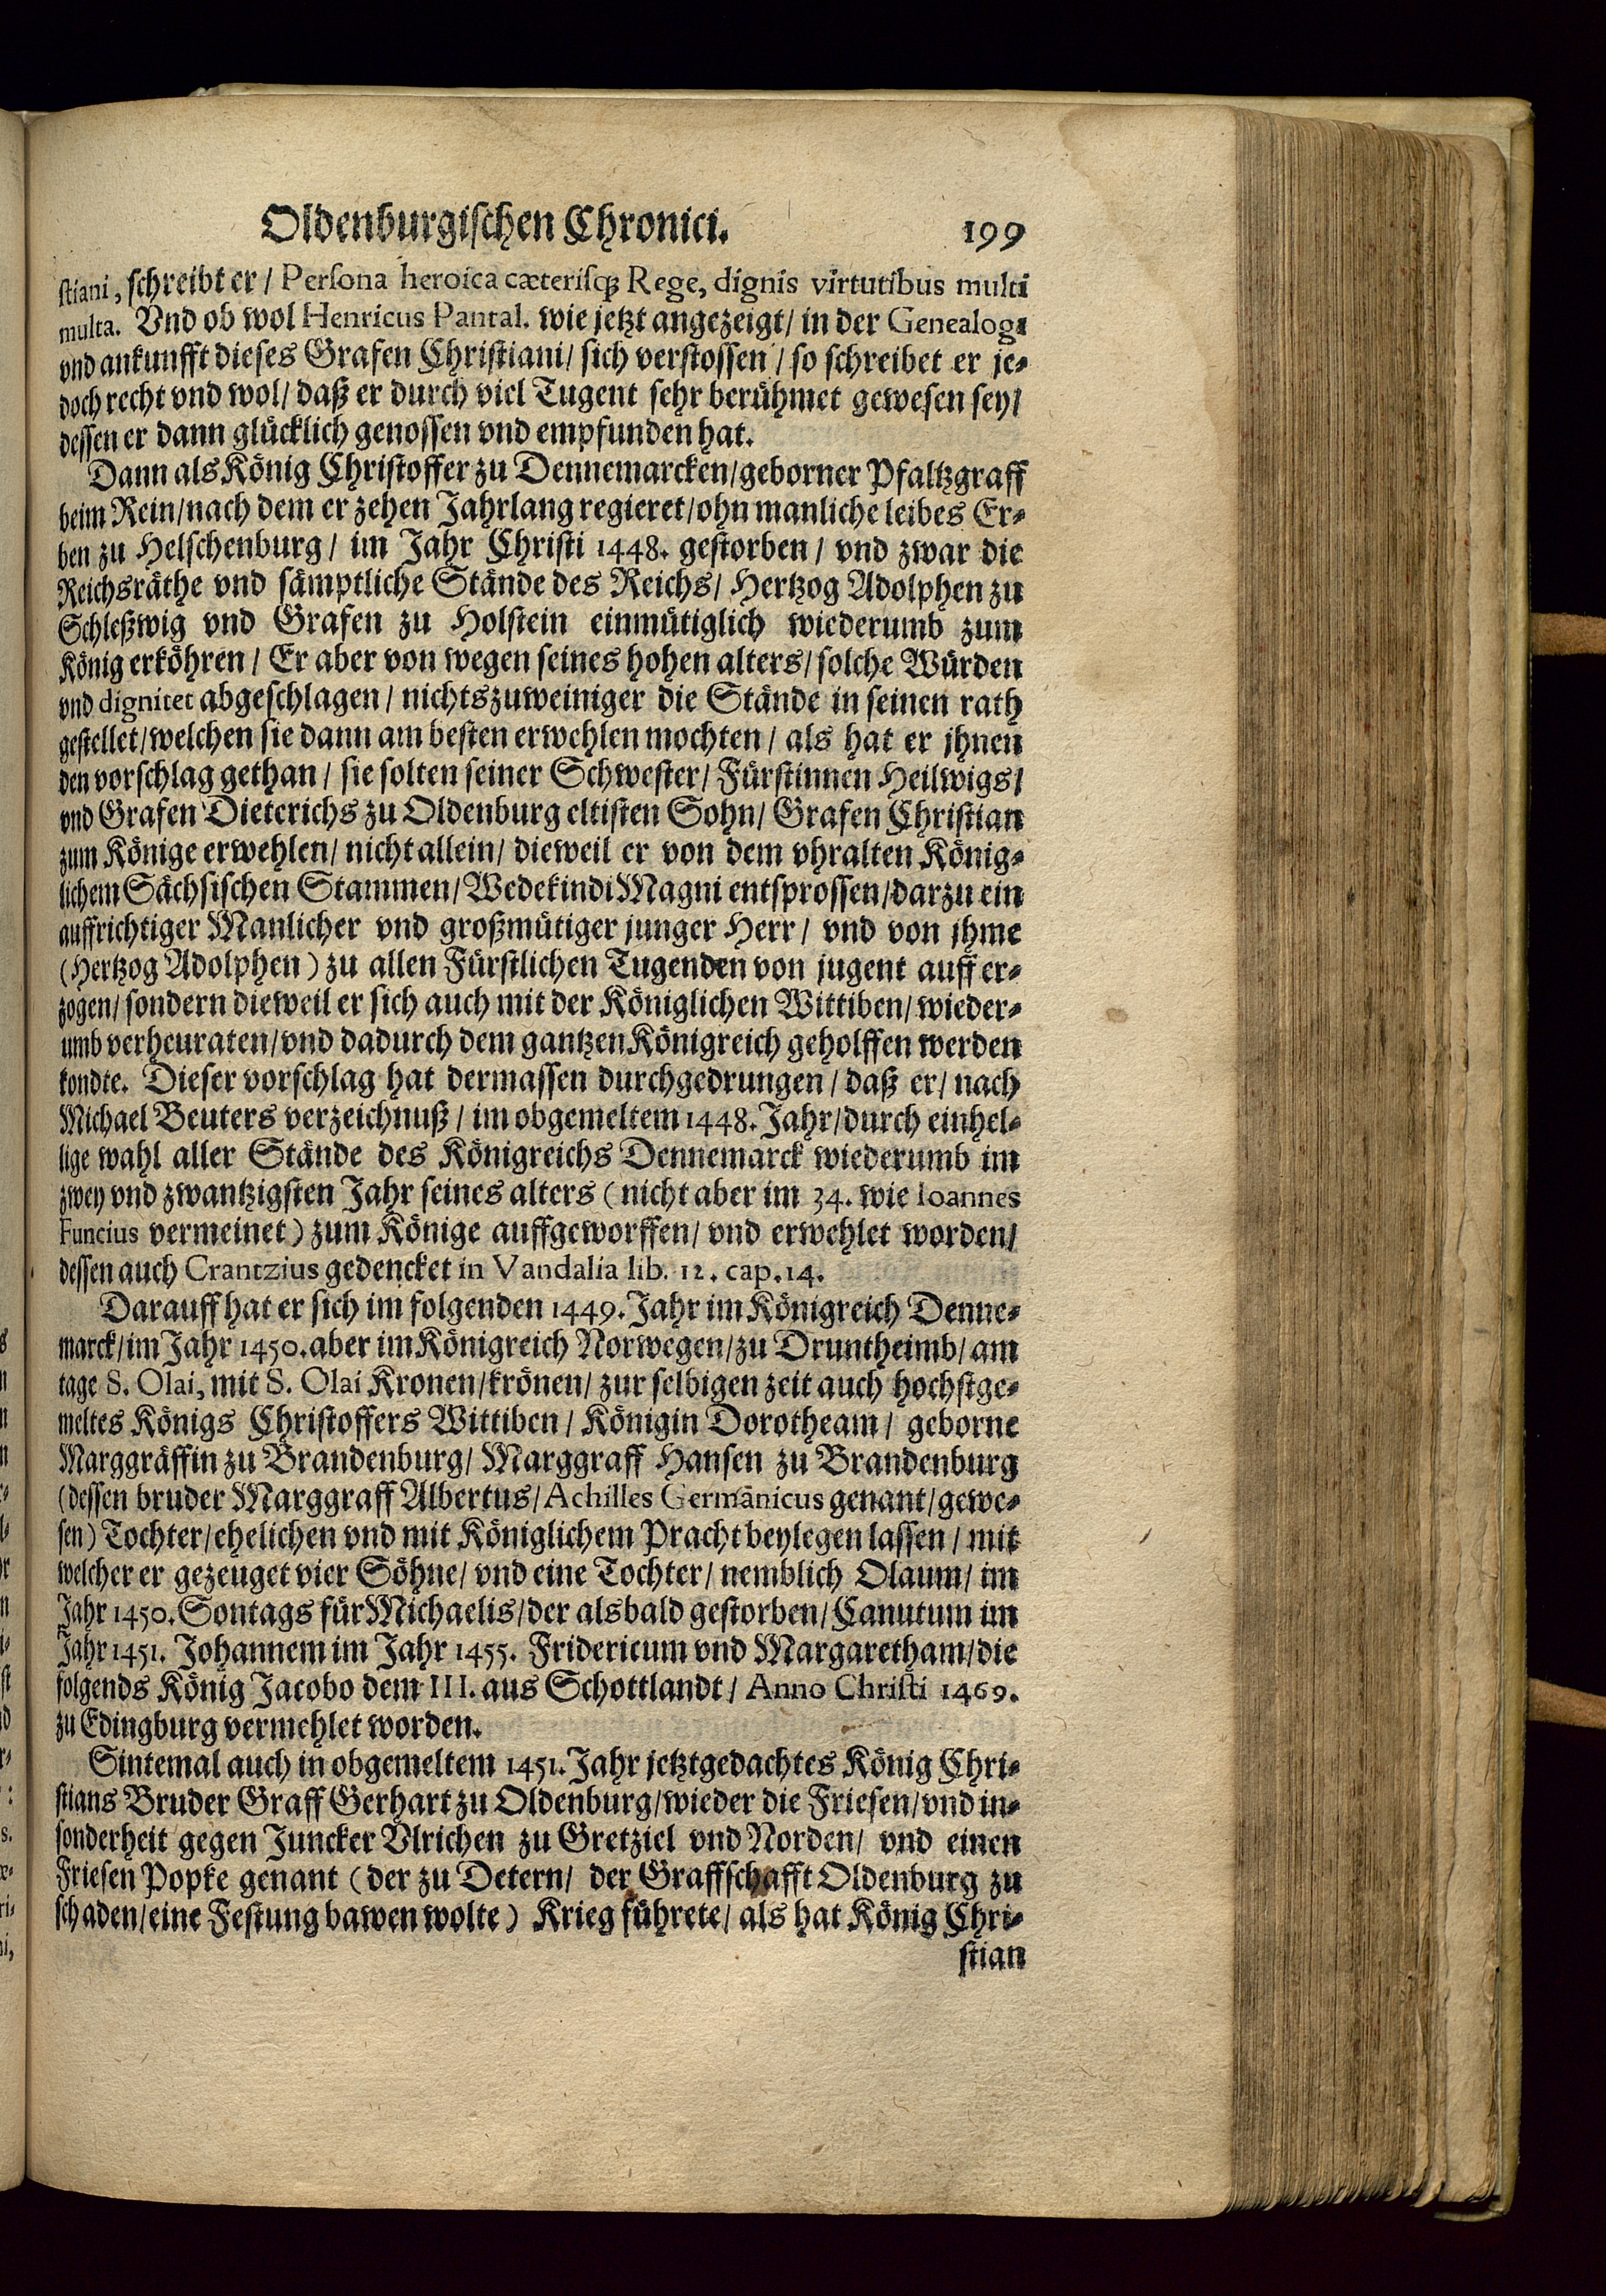 Oldenburgischen Chronici. 199
stiani, schreibt er / Persona heroica cæterisq; Rege, dignis virtutibus multi
multa. Vnd ob wol Henricus Pantal. wie jetzt angezeigt / in der Genealogi
vnd ankunfft dieses Grafen Christiani / sich verstossen / so schreibet er je-
doch recht vnd wol / daß er durch viel Tugent sehr berühmet gewesen sey /
dessen er dann glücklich genossen vnd empfunden hat.
Dann als König Christoffer zu Dennemarcken / geborner Pfaltzgraff
beim Rein / nach dem er zehen Jahrlang regieret / ohn manliche leibes Er-
ben zu Helschenburg / im Jahr Christi 1448. gestorben / vnd zwar die
Reichsräthe vnd sämptliche Stände des Reichs / Hertzog Adolphen zu
Schleßwig vnd Grafen zu Holstein einmütiglich wiederumb zum
König erköhren / Er aber von wegen seines hohen alters / solche Würden
vnd dignitet abgeschlagen / nichtszuweiniger die Stände in seinen rath
gestellet / welchen sie dann am besten erwehlen mochten / als hat er jhnen
den vorschlag gethan / sie solten seiner Schwester / Fürstinnen Heilwigs /
vnd Grafen Dieterichs zu Oldenburg eltisten Sohn / Grafen Christian
zum Könige erwehlen / nicht allein / dieweil er von dem vhralten König-
lichem Sächsischen Stammen / Wedekindi Magni entsprossen / darzu ein
auffrichtiger Manlicher vnd großmütiger junger Herr / vnd von jhme
(Hertzog Adolphen) zu allen Fürstlichen Tugenden von jugent auff er-
zogen / sondern dieweil er sich auch mit der Königlichen Wittiben / wieder-
umb verheuraten / vnd dadurch dem gantzen Königreich geholffen werden
kondte. Dieser vorschlag hat dermassen durchgedrungen / daß er / nach
Michael Beuters verzeichnuß / im obgemeltem 1448. Jahr / durch einhel-
lige wahl aller Stände des Königreichs Dennemarck wiederumb im
zwey vnd zwantzigsten Jahr seines alters (nicht aber im 34. wie Ioannes
Funcius vermeinet) zum Könige auffgeworffen / vnd erwehlet worden /
dessen auch Crantzius gedencket in Vandalia lib. 12. cap. 14.
Darauff hat er sich im folgenden 1449. Jahr im Königreich Denne-
marck / im Jahr 1450. aber im Königreich Norwegen / zu Druntheimb / am
tage S. Olai, mit S. Olai Kronen / krönen / zur selbigen zeit auch hochstge-
meltes Königs Christoffers Wittiben / Königin Dorotheam / geborne
Marggräffin zu Brandenburg / Marggraff Hansen zu Brandenburg
(dessen bruder Marggraff Albertus / Achilles Germanicus genant / gewe-
sen) Tochter / ehelichen vnd mit Königlichem Pracht beylegen lassen / mit
welcher er gezeuget vier Söhne / vnd eine Tochter / nemblich Olaum / im
Jahr 1450. Sontags für Michaelis / der alsbald gestorben / Canutum im
Jahr 1451. Johannem im Jahr 1455. Fridericum vnd Margaretham / die
folgends König Jacobo dem III. aus Schottlandt / Anno Christi 1469.
zu Edingburg vermehlet worden.
Sintemal auch in obgemeltem 1451. Jahr jetztgedachtes König Chri-
stians Bruder Graff Gerhart zu Oldenburg / wieder die Friesen / vnd in-
sonderheit gegen Juncker Vlrichen zu Gretziel vnd Norden / vnd einen
Friesen Popke genant (der zu Detern / der Graffschafft Oldenburg zu
schaden / eine Festung bawen wolte) Krieg führete / als hat König Chri-
stian